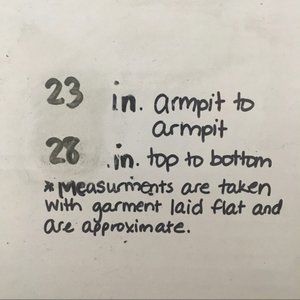 23 in. armpit to
armpit
28 .in. top to bottom
*Measurments are taken
with garment laid flat and
are approximate.